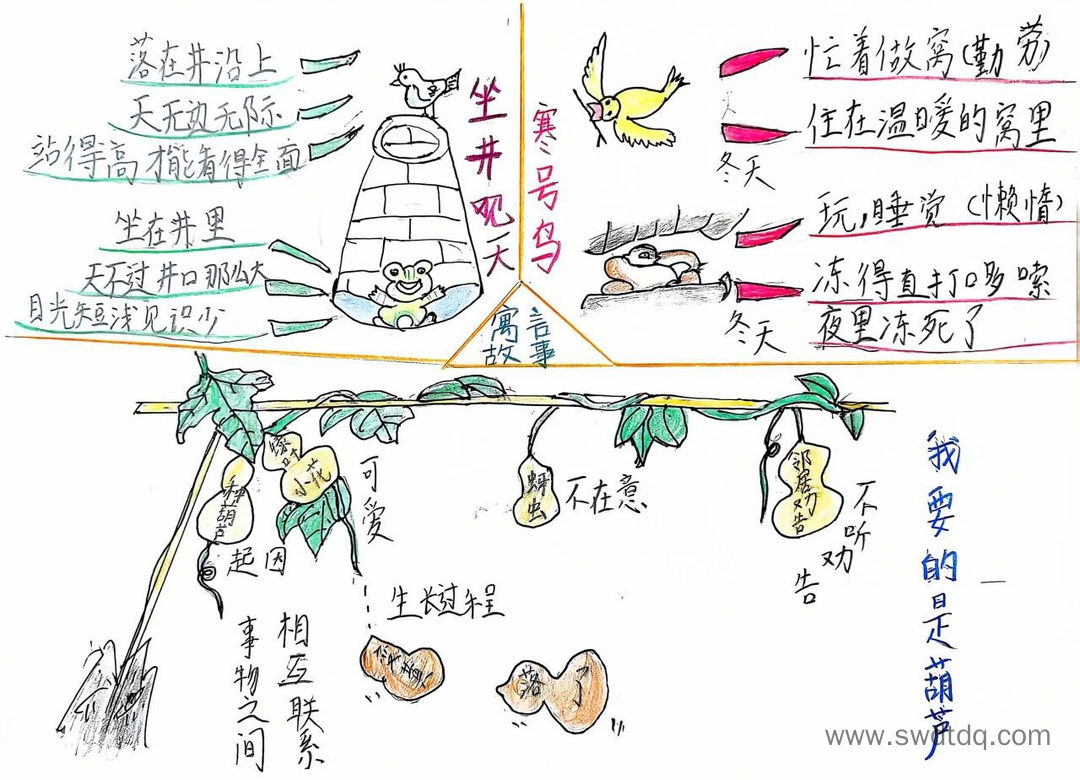 落在井沿上
天无边无际
站得高才能看得全面
坐在井里
天不过井口那么大
目光短浅见识少
坐井观天
寒号鸟
忙着做窝(勤劳)
住在温暖的窝里
冬天
玩,睡觉(懒惰)
冻得直打哆嗦
夜里冻死了
冬天
寓言
故事
种葫芦
起因
小花
可爱
蚜虫
不在意
邻居劝告
不听劝告
生长过程
落了
事物之间
相互联系
我要的是葫芦
www.swdtdq.com